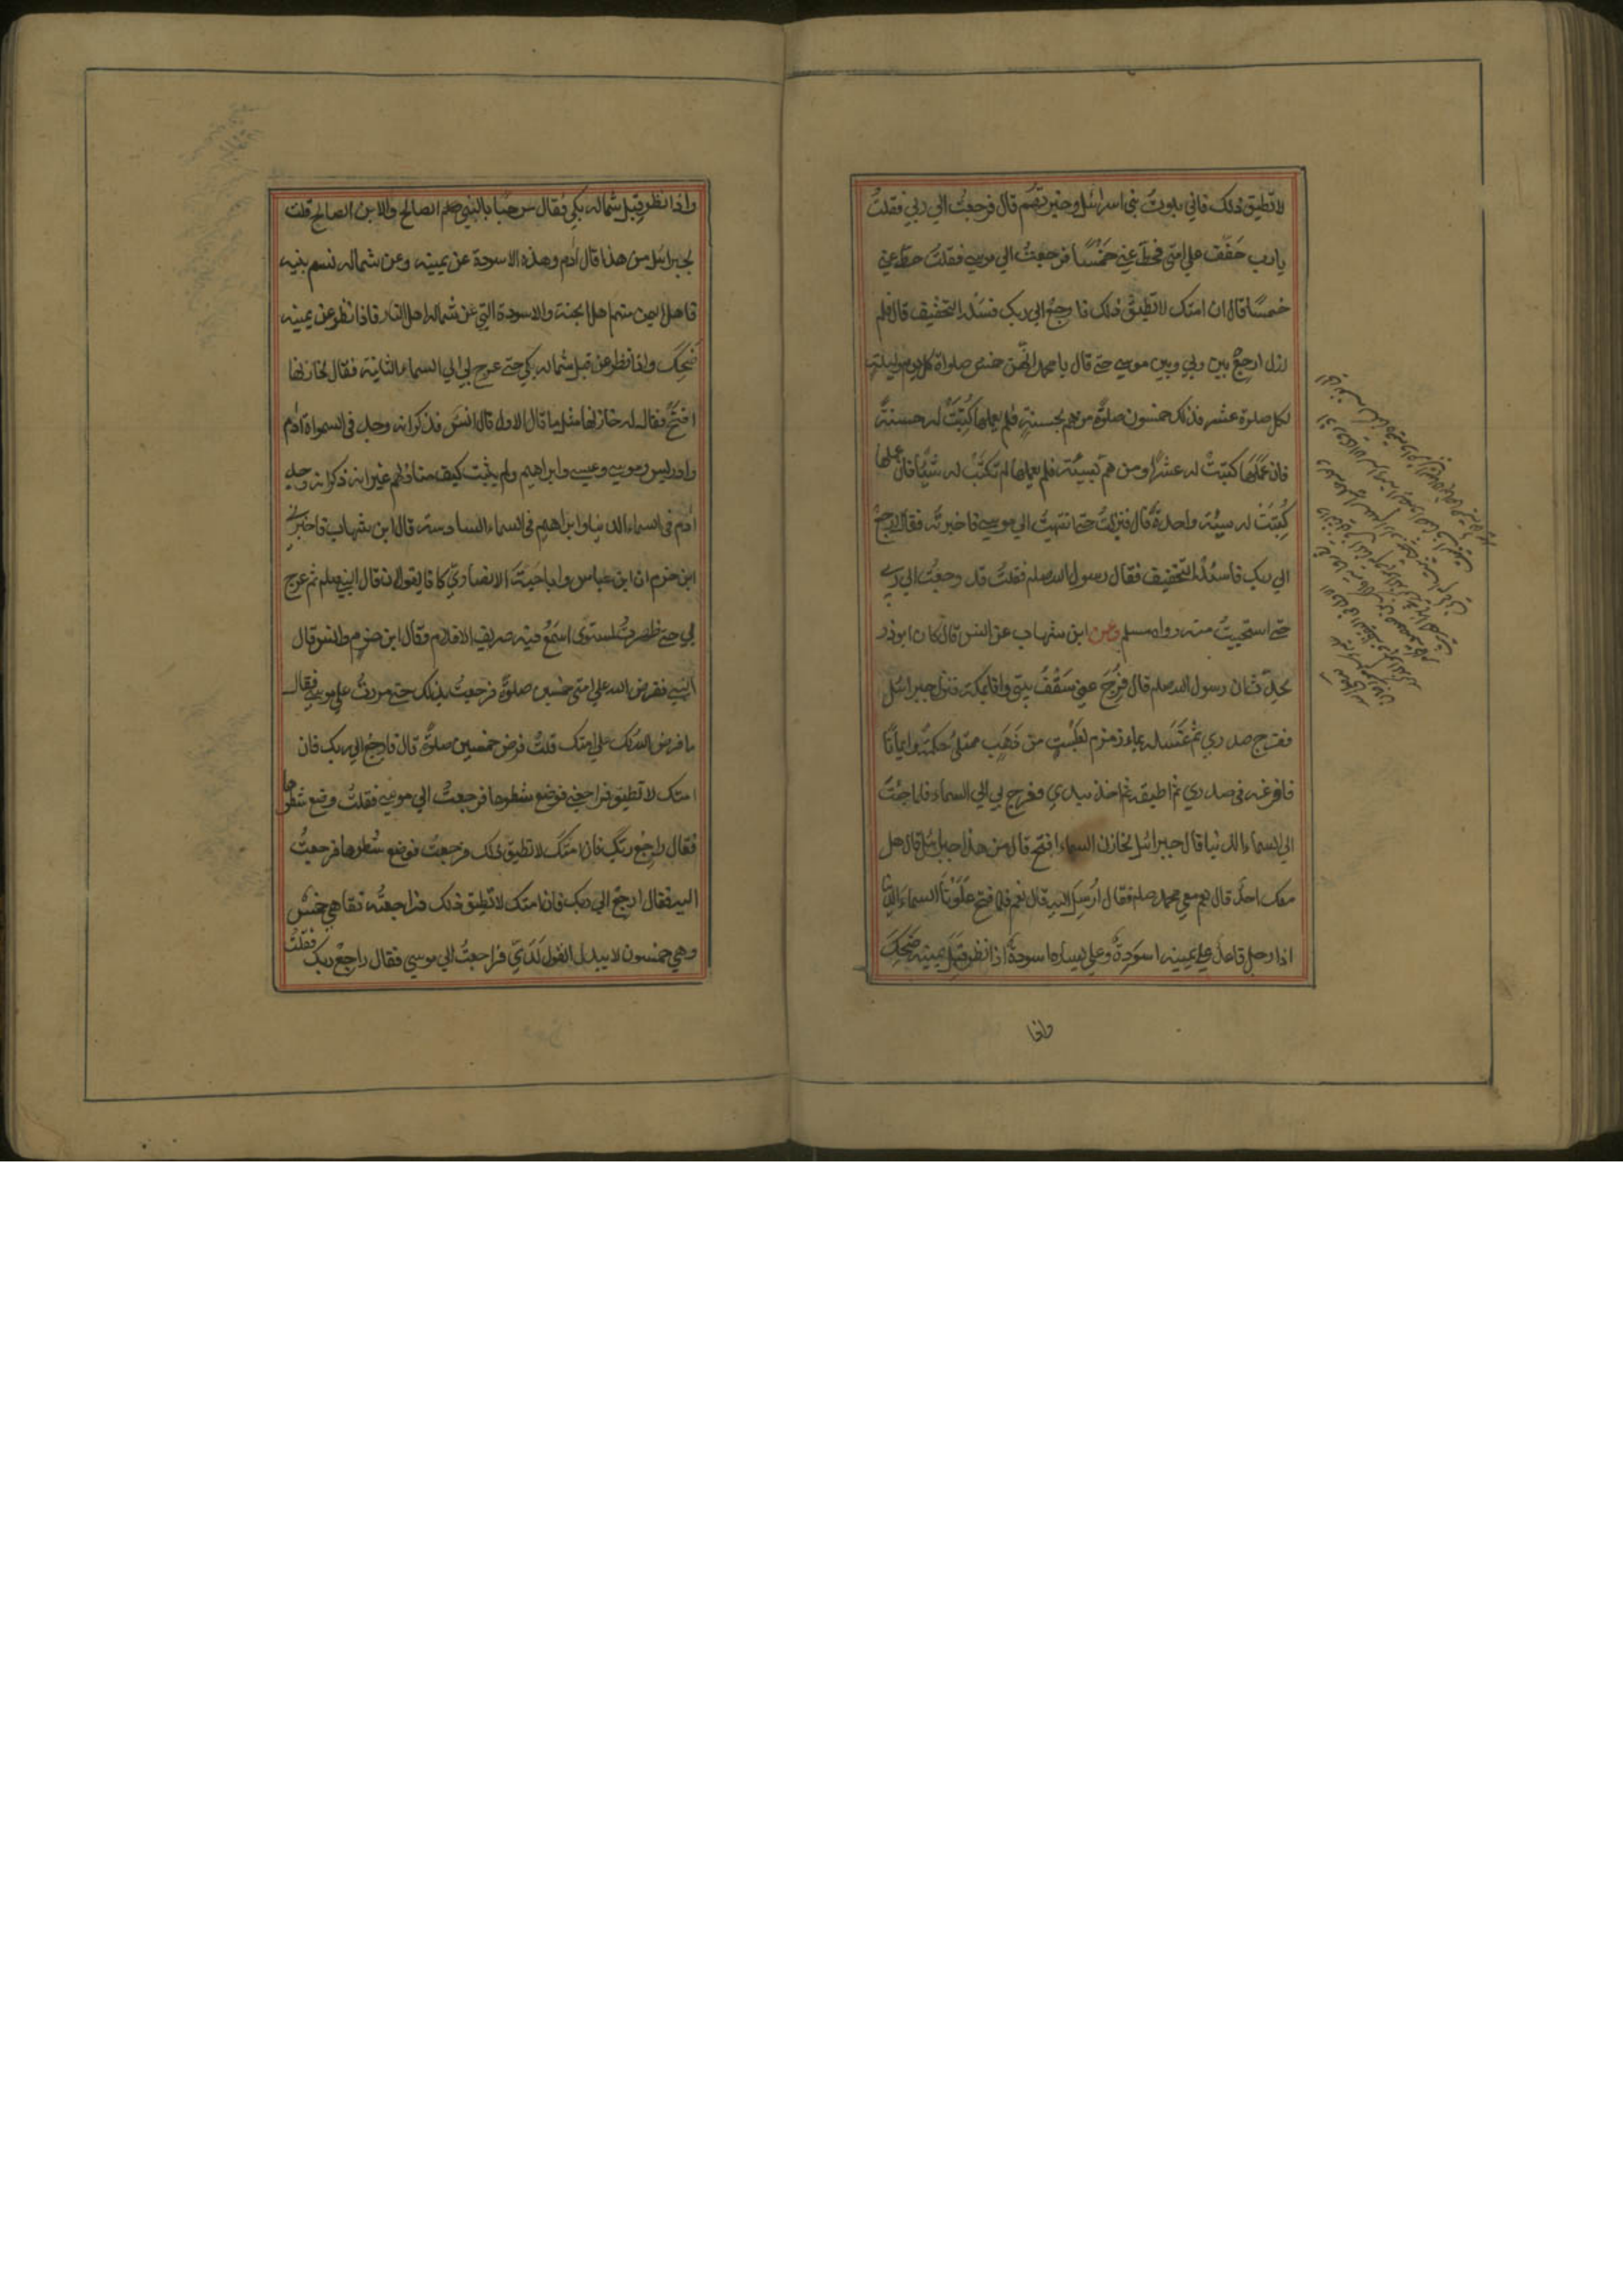 لا تطيق ذلك فاني بلوت بني اسرائيل وخبرتهم قال فرجعت الي ربي فقلت
يا رب خفف علي امتي فحط عني خمسا فرجعت الي موسي فقلت حط عني
خمسا قال ان امتك لا تطيق ذلك فارجع الي ربك فسئله التخفيف قال فلم
ازل ارجع بين ربي وبين موسي حتي قال يا محمد انهن خمس صلواة كل يوم وليلة
لكل صلوة عشر فذلك خمسون صلوة من هم بحسنة فلم يعملها كتبت له حسنة
فان عملها كتبت له عشرا ومن هم بسيئة فلم يعملها لم تكتب له شيئا فان عملها
كتبت له سيئة واحدة قال فنزلت حتي انتهيت الي موسي فاخبرته فقال ارجع
الي ربك فاسئله التخفيف فقال رسول الله صلم فقلت قد رجعت الي ربي
حتي استحييت منه رواه مسلم وعن ابن شهاب عن انس قال كان ابوذر
يحدث ان رسول الله صلم قال فرج عني سقف بيتي وانا بمكة فنزل جبرائيل
ففرج صدري ثم غسله بماء زمزم بطست من ذهب ممتلئ حكمة وايمانا
فافرغه في صدري ثم اطبقه ثم اخذ بيدي فعرج بي الي السماء فلما جئت
الي السماء الدنيا قال جبرائيل لخازن السماء افتح قال من هذا جبرائيل قال هل
معك احد قال نعم معي محمد صلم فقال ارسل اليه قال نعم فلما فتح علونا السماء الدنيا
اذا رجل قاعد علي يمينه اسودة وعلي يساره اسودة اذا نظر قبل يمينه ضحك
واذا
واذا نظر قبل شماله بكي فقال مرحبا بالنبي صلم الصالح والابن الصالح قلت
لجبرائيل من هذا قال آدم وهذه الاسودة عن يمينه وعن شماله نسم بنيه
فاهل اليمين منهم اهل الجنة والاسودة التي عن شماله اهل النار فاذا نظر عن يمينه
ضحك واذا نظر عن قبل شماله بكي حتي عرج بي الي السماء الثانية فقال لخازنها
افتح فقال له خازنها مثل ما قال الاول قال انس فذكر انه وجد في السمواة آدم
وادريس وموسي وعيسي وابراهيم ولم يثبت كيف منازلهم غير انه ذكر انه وجد
آدم في السماء الدنيا وابراهيم في السماء السادسة قال ابن شهاب فاخبرني
ابن حزم ان ابن عباس وابا حبة الانصاري كانا يقولان قال النبي صلم ثم عرج
بي حتي ظهرت لمستوي اسمع فيه صريف الاقلام وقال ابن حزم وانس قال
النبي ففرض الله علي امتي خمسين صلوة فرجعت بذلك حتي مررت علي موسي فقال
ما فرض الله لك علي امتك قلت فرض خمسين صلوة قال فارجع الي ربك فان
امتك لا تطيق فراجعني فوضع شطرها فرجعت الي موسي فقلت وضع شطرها
فقال راجع ربك فان امتك لا تطيق ذلك فرجعت فوضع شطرها فرجعت
اليه فقال ارجع الي ربك فان امتك لا تطيق ذلك فراجعته فقا هي خمس
وهي خمسون لا يبدل القول لدي فراجعت الي موسي فقال راجع ربك فقلت